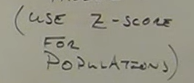 (USE Z-SCORE
FOR
POPULATIONS)